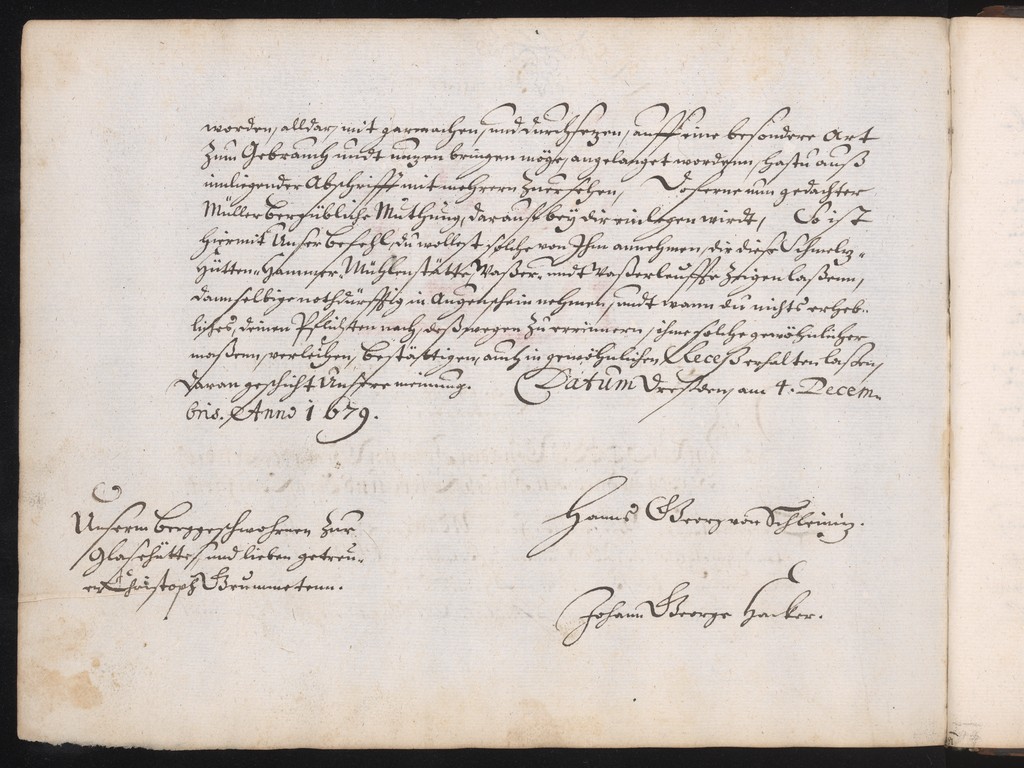 worden, alldar, mit garmachen, und durchsezen, auff eine besondere Art
Zum Gebrauch undt nuzen bringen möge, angelanget wordenn, hastu auß
inliegender Abschrifft mit mehrern Zuersehen, Doferne nun gedachter
Müller bergübliche Muthung, darauff bey dir einlegen wirdt, So ist
hiermit Unser befehl, du wollest solche von Ihm annehmen, dir diese Schmelz-
Hütten- Hammer- Mühlenstätte, Waßer- undt Waßerleuffte Zeigen laßenn,
damselbige nothdürfftig in Augenschein nehmen, undt wann du nichts erheb-
liches, deinen Pflichten nach, deßwegen Zu errinnern, ihme solche gewöhnlicher
maßenn, verleihen, bestätigen, auch in gewöhnlichen Receß erhalten laßen,
Daran geschicht Unsere meinung. Datum Dreßden, am 4. Decem-
bris. Anno 1679.
Unserm Berggeschwohrnen Zur
Glasehütte, und lieben getreu-
en Christoph Grummetenn.
Hanns Georg von Schleiniz.
Johann George Hacker.